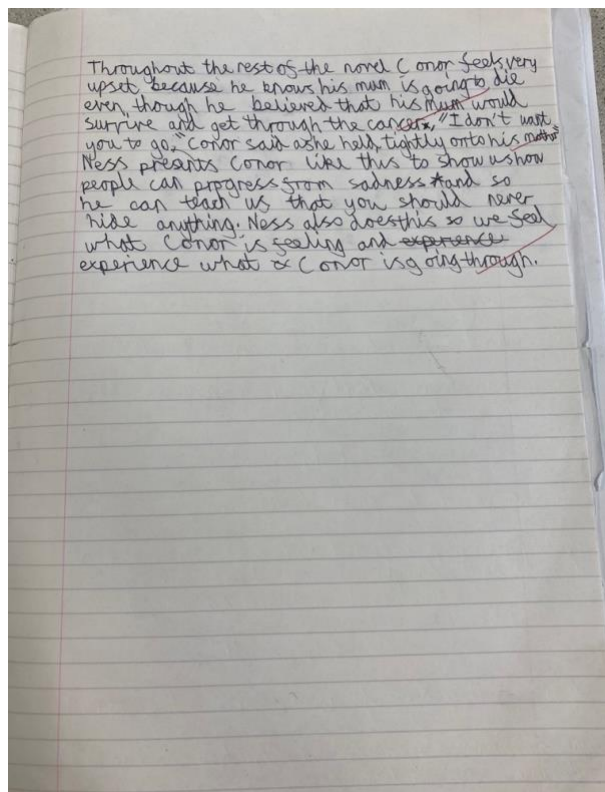 Throughout the rest of the novel Conor feels very
upset, because he knows his mum is going to die
even though he believed that his mum would
survive and get through the cancer, "I don't want
you to go," Conor said as he held tightly onto his mother"
Ness presants Conor like this to show us how
people can progress from sadness and so
he can teach us that you should never
hide anything. Ness also does this so we feel
what Conor is feeling and experience
experience what Conor is going through.